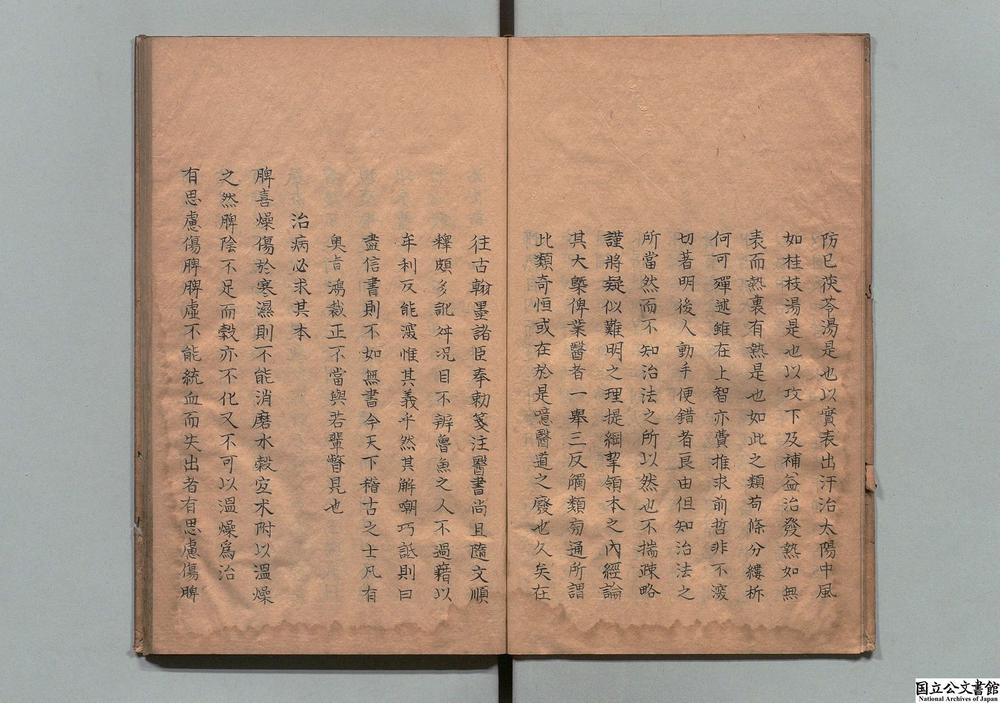 防已茯苓湯是也以實表出汗治太陽中風
如桂枝湯是也以攻下及補益治發熱如無
表而熱裏有熱是也如此之類苟條分縷析
何可殫述雖在上智亦費推求前哲非不深
切著明後人動手便錯者良由但知治法之
所當然而不知治法之所以然也不揣疎略
謹將疑似難明之理提綱挈領本之內經論
其大槩俾業醫者一舉三反觸類旁通所謂
比類奇恒或在於是噫醫道之廢也久矣在
往古翰墨諸臣奉勅箋注醫書尚且隨文順
釋頗多訛舛况目不辨魯魚之人不過藉以
牟利反能深惟其義乎然其解嘲巧詆則曰
盡信書則不如無書今天下稽古之士凡有
奥旨鴻裁正不當與若輩瞽見也
治病必求其本
脾喜燥傷於寒濕則不能消磨水穀宜术附以溫燥
之然脾陰不足而穀亦不化又不可以溫燥爲治
有思慮傷脾脾虛不能統血而失出者有思慮傷脾
国立公文書館
National Archives of Japan